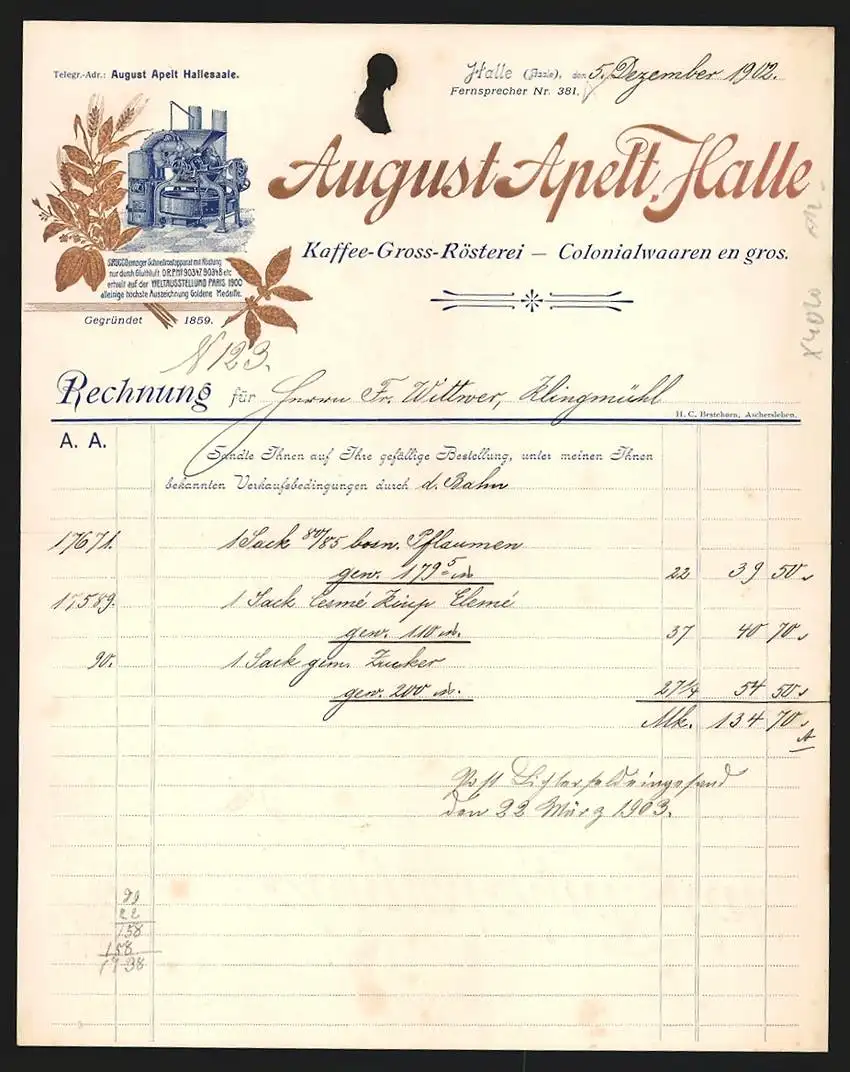 Telegr.-Adr.: August Apelt Hallesaale.
Halle (Saale), den 5. Dezember 1902.
Fernsprecher Nr. 381.
August Apelt, Halle
Kaffee-Gross-Rösterei — Colonialwaaren en gros.
einziger Schnellröstapparat mit Röstung
nur durch Gluthluft. D.R.P. Nº 90347, 90348 etc
erhielt auf der WELTAUSSTELLUNG PARIS 1900
alleinige höchste Auszeichnung Goldene Medaille.
Gegründet 1859.
N 123.
Rechnung für Herrn Fr. Wittwer, Klingmühl
H. C. Bestehorn, Aschersleben.
A. A.
Sandte Ihnen auf Ihre gefällige Bestellung, unter meinen Ihnen
bekannten Verkaufsbedingungen durch d. Bahn
17671. 1 Sack 80/85 bosn. Pflaumen
gew. 179 5 22 39 50
17589. 1 Sack Cesmé Elemé
gew. 110 37 40 70
90. 1 Sack gem. Zucker
gew. 200 27 1/4 54 50
Mk. 134 70
Post Lichterfeld eingesand
den 22 März 1903.
22
158
158